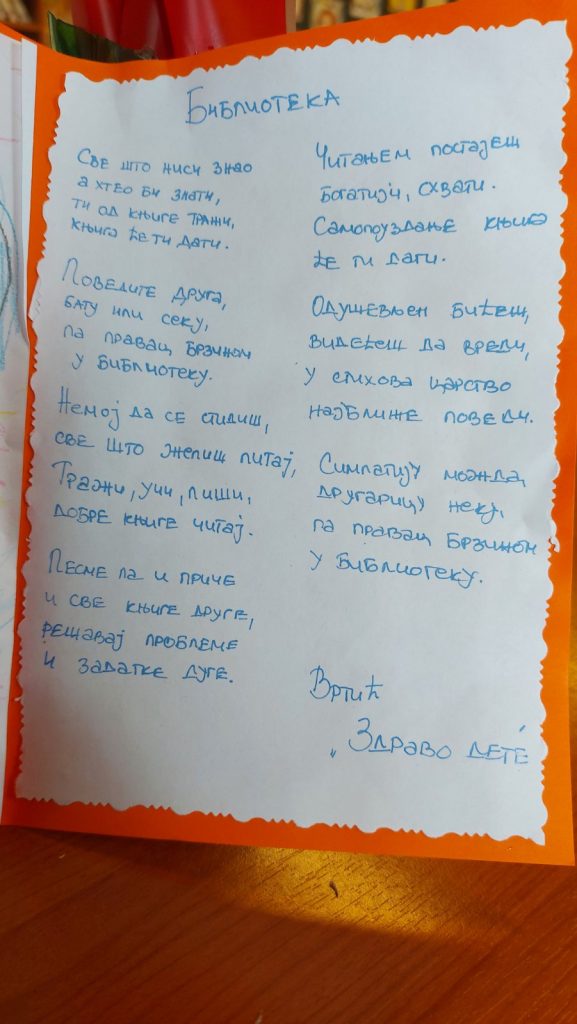 Библиотека
Све што ниси знао
а хтео би знати,
ти од књиге тражи,
књига ће ти дати.
Поведите друга,
бату или секу,
па правац брзином
у библиотеку.
Немој да се стидиш,
све што желиш питај,
Тражи, учи, пиши,
добре књиге читај.
Песме па и приче
и све књиге друге,
решавај проблеме
и задатке дуге.
Читањем постајеш
богатији, схвати.
Самопоуздање књига
ће ти дати.
Одушевљен бићеш,
видећеш да вреди,
у стихова царство
најближе поведи.
Симпатију можда,
другарицу неку,
па правац брзином
у библиотеку.
Вртић
„Здраво дете"